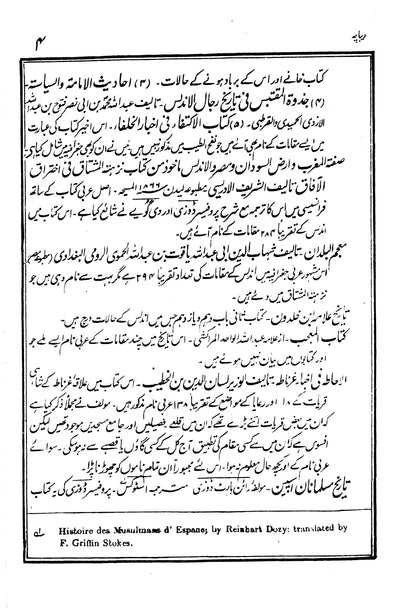 دیباچہ
۴
کتاب خانے اور اس کے برباد ہونے کے حالات۔ (۳) احادیث الامامۃ والسیاستہ۔
(۴) جذوۃ المقتبس فی تاریخ رجال الاندلس۔ تالیف عبداللہ محمد بن ابی نصر فتوح بن عبداللہ
الازدی الحمیدی والقرطبی۔ (۵) کتاب الاکتفا فی اخبار الخلفا۔ اس اخیر کتاب کی عبارت
میں ایسے مقامات کے نام بھی آئے ہیں جو نفح الطیب میں مذکور نہیں ہیں
صفۃ المغرب وارض السودان ومصر والاندلس ماخوذ من کتاب نزہتہ المشتاق فی اختراق
الآفاق تالیف الشریف الادریسی مطبوعہ لیدن ۱۸۶۶ المسیحہ۔ اصل عربی کتاب کے ساتھ
فرانسیسی میں اس کا ترجمہ مع شرح پروفیسر ڈوزی اور دی گویے نے شائع کیا ہے۔ اس کتاب میں
اندلس کے تقریباً ۲۸۴ مقامات کے نام آئے ہیں۔
معجم البلدان۔ تالیف شہاب الدین ابی عبداللہ یاقوت بن عبداللہ الحموی الرومی البغدادی
اس مشہور عربی جغرافیہ میں اندلس کے مقامات کی تعداد تقریباً ۲۹۴ ہے مگر بہت سے نام وہی ہیں جو
نزہتہ المشتاق میں دئے ہیں۔
تاریخ علامہ ابن خلدون۔ کتاب ثانی باب دہم و یازدہم جس میں اندلس کے حالات درج ہیں۔
کتاب المعجب۔ از علامہ عبدالواحد المراکشی۔ اس تاریخ میں چند مقامات کے عربی نام ایسے ملے جو
اور کتابوں میں بیان نہیں ہوئے ہیں۔
الاحاطہ فی اخبار غرناطہ۔ تالیف لوزیر لسان الدین بن الخطیب۔ اس کتاب میں علاقہ غرناطہ کے شاہی
قریات کے ۱۰ اور رعایا کے مواضع کے تقریباً ۱۳۸ عربی نام مذکور ہیں۔ مولف نے مجملاً ذکر کیا ہے
کہ ان میں بعض قریات اتنے بڑے تھے کہ ان میں قلعے، فصیلیں اور جامع مسجدیں موجود تھیں لیکن
افسوس ہے کہ ان میں سے کسی مقام کی تطبیق آج کل کے کسی گاؤں یا قصبے سے نہ ہو سکی۔ سوائے
عربی نام کے اور کچھ حال معلوم نہ ہوا۔ اس لئے مجبوراً ان تمام ناموں کو چھوڑنا پڑا۔
تاریخ مسلمانان اسپین۔ مولفہ رائن ہارٹ ڈوزی مترجمہ اسٹوکس۔ پروفیسر ڈوزی کی یہ کتاب
Histoire des Musulmans d' Espane; by Reinhart Dozy: translated by
F. Griffin Stokes.